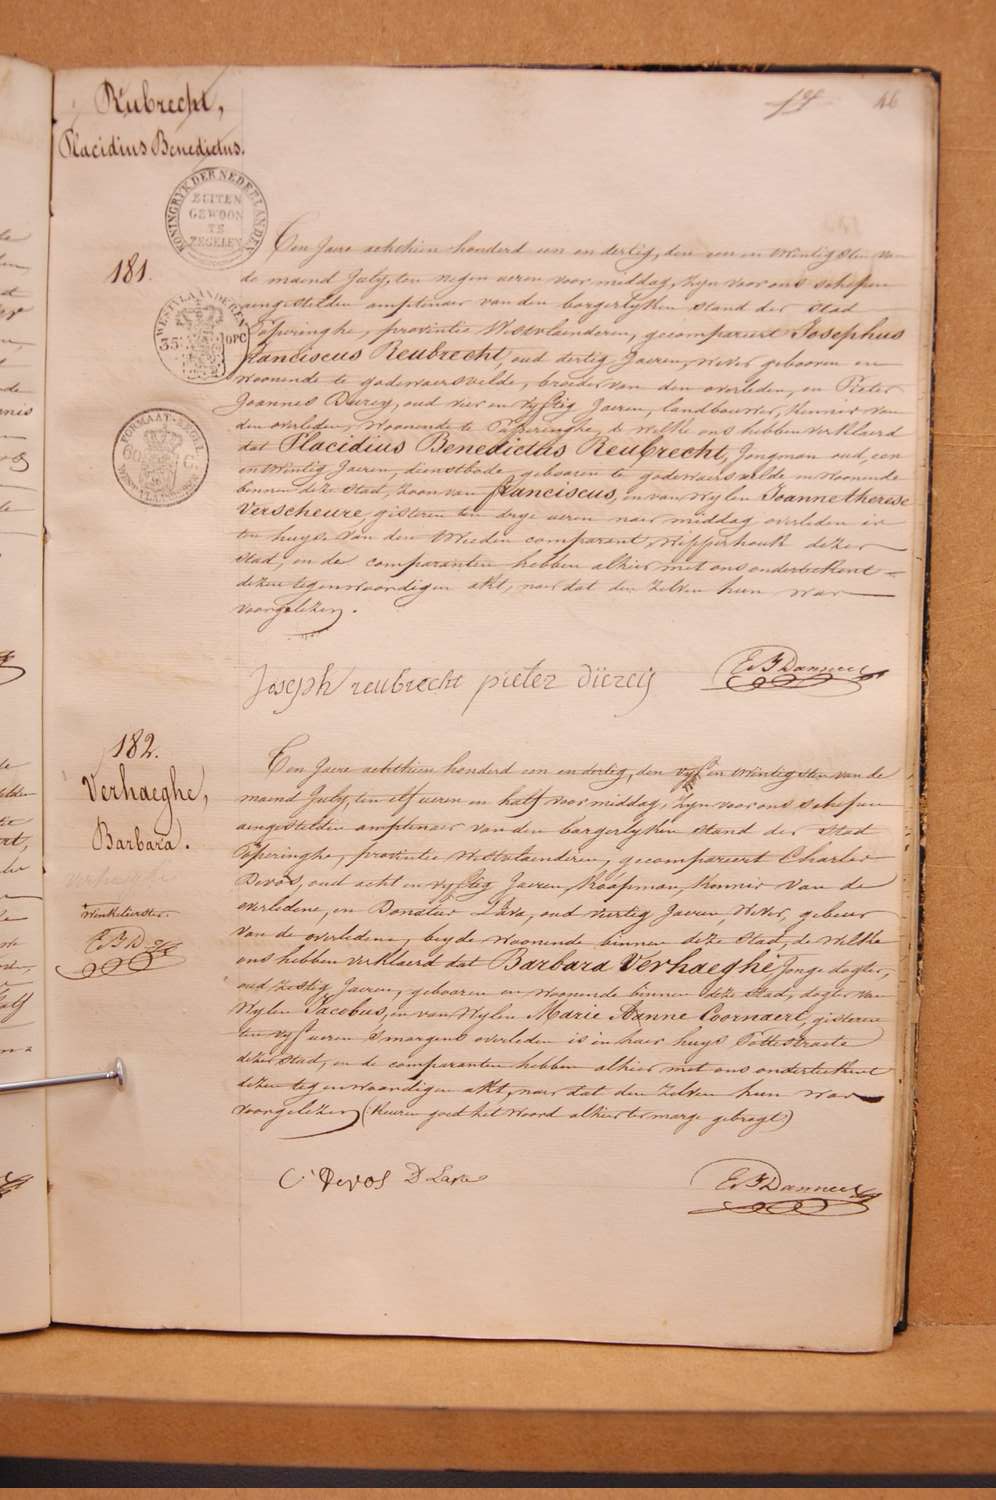 46
Rubrecht,
Placidius Benedictus.
KONINGRYK DER NEDERLANDEN
BUITEN
GEWOON
TE
ZEGELEN
181.
WESTVLAANDEREN
35 OPC
FORMAAT-ZEGEL
WESTVLAANDEREN
Ten Jaere achttien honderd een en dertig, den een en twintigsten van
de maend July, ten negen ueren voor middag, zyn voor ons schepen
aengestelden amptenaer van den borgerlyken stand der stad
Poperinghe, provintie Westvlaenderen, gecompareert Josephus
Franciscus Reubrecht, oud dertig Jaeren, wever gebooren en
woonende te godewaersvelde, broeder van den overleden, en Pieter
Joannes Dierey, oud vier en vyftig Jaeren, landbouwer, kennis van
den overleden, woonende te Poperinghe, de welke ons hebben verklaerd
dat Placidius Benedictus Reubrecht, Jongman oud, een
en twintig Jaeren, dienstbode, gebooren te godewaersvelde en woonende
binnen deze stad, zoon van franciscus, en van wylen Joanne therese
Verscheure, gisteren ten drye ueren naer middag overleden is
ten huyse van den tweeden comparant, wipperhoek dezer
stad, en de comparanten hebben alhier met ons onderteekent
dezen tegenwoordigen akt, naer dat den zelven hun was
voorgelezen.
Joseph reubrecht pieter diereij
E. F. Danneel
182.
Verhaeghe,
Barbara.
Winkelierster.
E.F.D.
Ten Jaere achttien honderd een en dertig, den vyf en twintigsten van de
maend July, ten elf ueren en half voor middag, zyn voor ons schepen
aengestelden amptenaer van den borgerlyken stand der stad
Poperinghe, provintie Westvlaenderen, gecompareert Charles
Devos, oud acht en vyftig Jaeren, Koopman, kennis van de
overledene, en Donatus Lava, oud veertig Jaeren, wever, gebeur
van de overledene, beyde woonende binnen deze stad, de welke
ons hebben verklaerd dat Barbara Verhaeghe Jonge dogter,
oud zestig Jaeren, gebooren en woonende binnen deze stad, dogter van
wylen Jacobus, en van wylen Marie Anne Coornaert, gisteren
ten vyf ueren s'morgens overleden is in haer huys Pottestraete
dezer stad, en de comparanten hebben alhier met ons onderteekent
dezen tegenwoordigen akt, naer dat den zelven hun was
voorgelezen (keuren goed het woord alhier ter marge gebragt)
C. Devos D Lava
E. F. Danneel